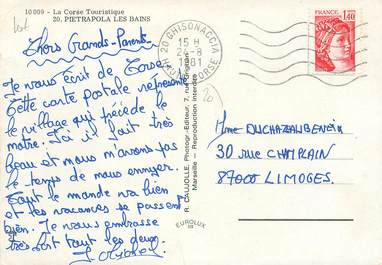 10 009 - La Corse Touristique
20. PIETRAPOLA LES BAINS
lot
Chers Grands-Parents
Je vous écrit de Corse.
Cette carte postale représente
le village qui précède le
notre. Ici il fait très
beau et nous n'avons pas
le temps de nous ennuyer.
Tout le monde va bien
et les vacances se passent
bien. Je vous embrasse
très fort tout les deux.
R. CAUJOLLE, Photogr.-Editeur
Marseille - Reproduction interdite
EUROLUX
20 GHISONACCIA
15 H
CORSE
FRANCE
1,40
20
Mme DUCHAZAUBENEIX
30 RUE CHAMPLAIN
87000 LIMOGES.